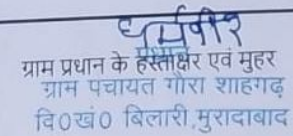 धर्मवीर
प्रधान
ग्राम प्रधान के हस्ताक्षर एवं मुहर
ग्राम पंचायत गौरा शाहगढ़
वि०खं० बिलारी,मुरादाबाद